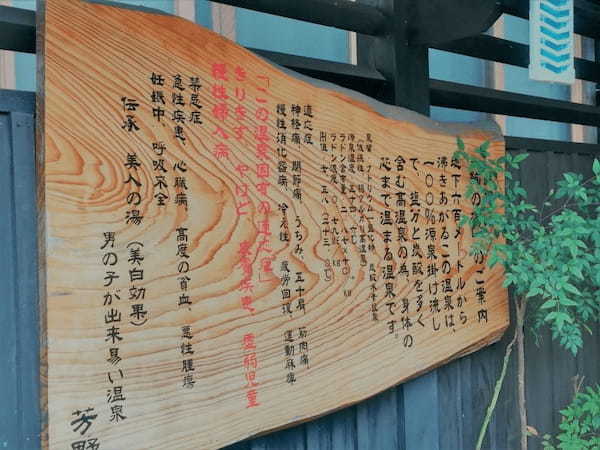 の湯 のご案内
地下六百メートルから
沸きあがるこの温泉は、
一〇〇%源泉掛け流し
で、塩分と炭酸を多く
含む高温泉の為、身体の
芯まで温まる温泉です。
適応症
神経痛、関節痛、うちみ、五十肩、筋肉痛、
慢性消化器病、冷え性、疲労回復、運動麻痺
「この温泉固有の適応症」
きりきず、やけど、 虚弱児童
慢性婦人病
禁忌症
急性疾患、心臓病、高度の貧血、悪性腫瘍
妊娠中、呼吸不全
伝承 美人の湯(美白効果)
男の子が出来易い温泉
芳野